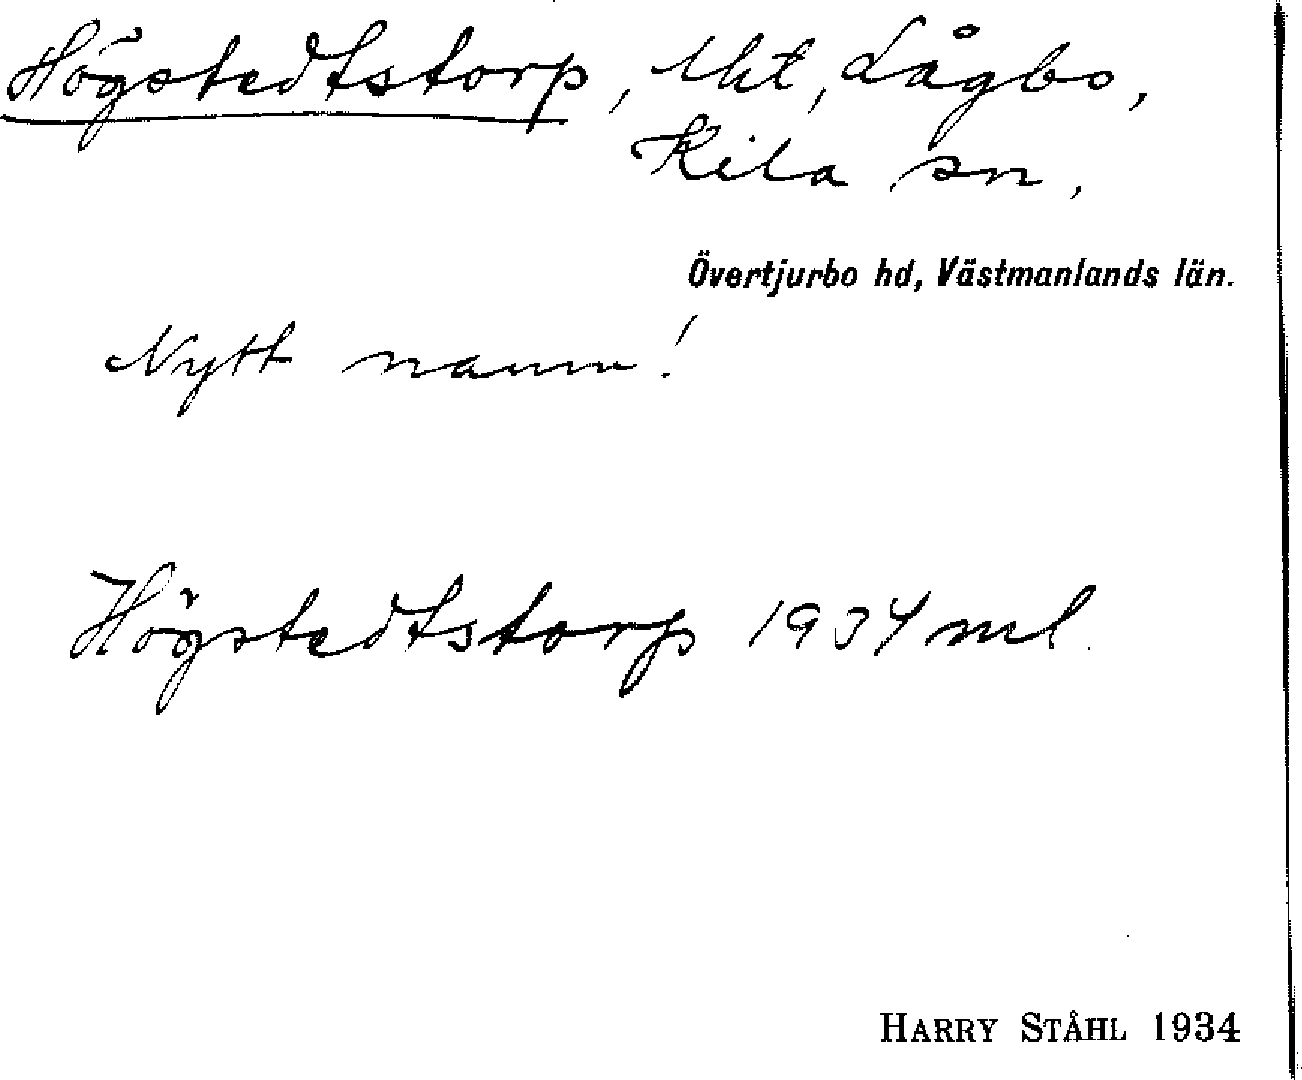 Högstedtstorp, lht, Lågbo,
Kila sn,
Övertjurbo hd, Västmanlands län.
Nytt namn!
Högstedtstorp 1934 ml.
HARRY STÅHL 1934